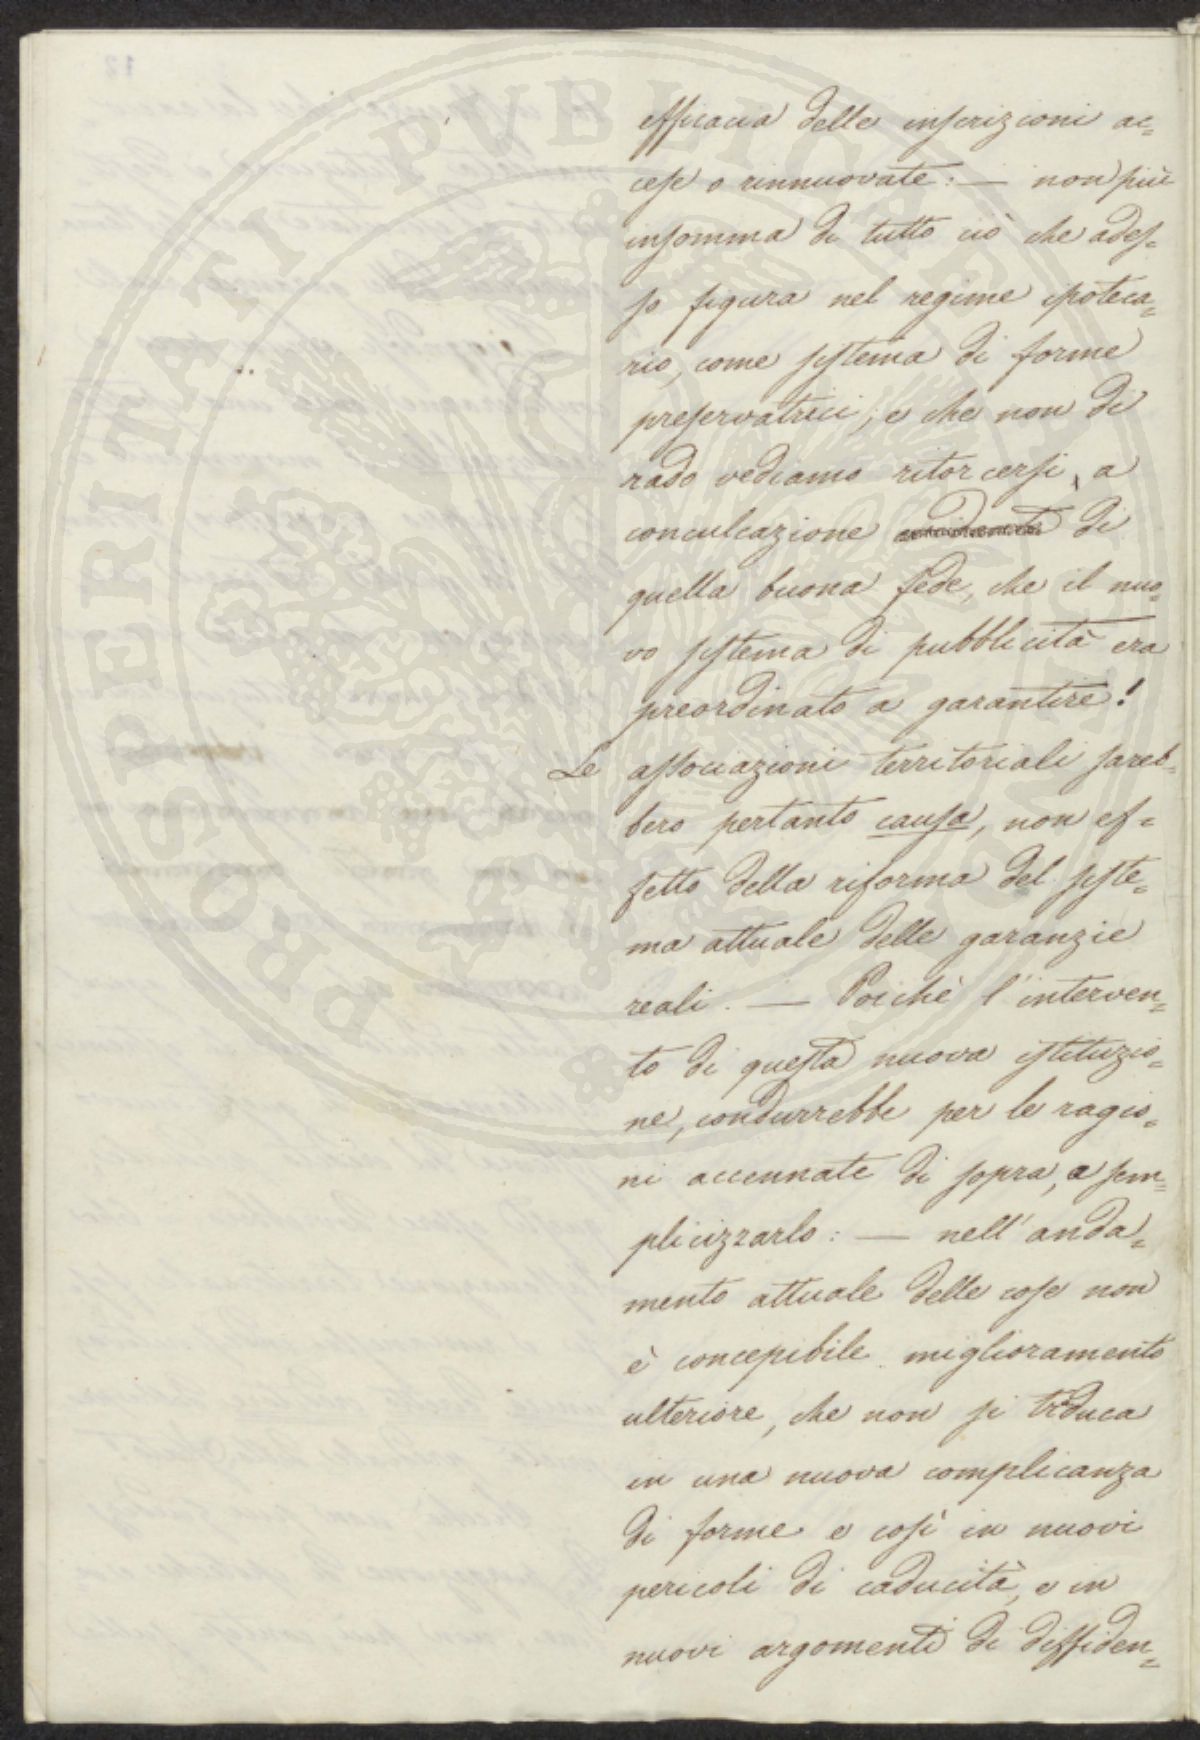 efficacia delle inscrizioni ac=
cese o rinnuovate: — non più
insomma di tutto ciò che ades=
so figura nel regime ipoteca=
rio, come sistema di forme
preservatrici; e che non di
rado vediamo ritorcersi, a
conculcazione di
quella buona fede, che il nuo=
vo sistema di pubblicità era
preordinato a garantire!
Le associazioni territoriali sareb=
bero pertanto causa, non ef=
fetto della riforma del siste=
ma attuale delle garanzie
reali. — Poichè l'interven=
to di questa nuova istituzio=
ne, condurrebbe per le ragio=
ni accennate di sopra, a sem=
plicizzarlo: — nell'anda=
mento attuale delle cose non
è concepibile miglioramento
ulteriore, che non si traduca
in una nuova complicanza
di forme e così in nuovi
pericoli di caducità, e in
nuovi argomenti di diffiden=
PROSPERITATI PUBLICAE